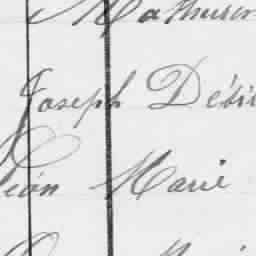 Mathurin
Joseph Dési
Léon Marie